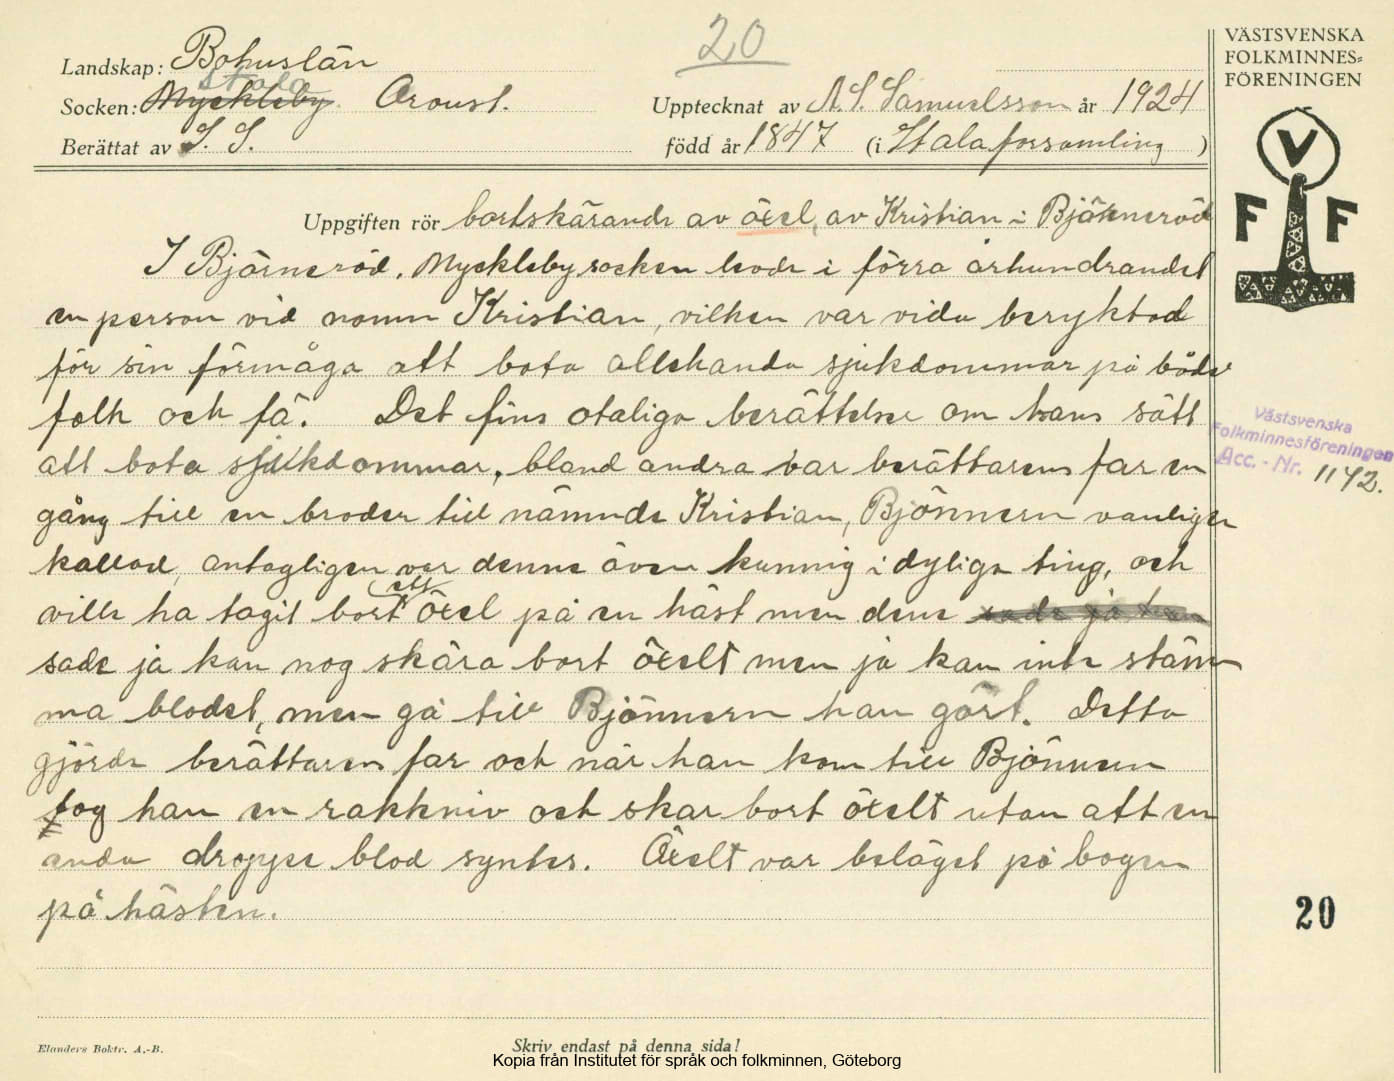 20
VÄSTSVENSKA
FOLKMINNES=
FÖRENINGEN
Landskap: Bohuslän
Stala
Socken: Myckleby Oroust.
Upptecknat av N. S. Samuelsson år 1924
Berättat av S. S.
född år 1847 (i Stala forsamling )
V
F F
Uppgiften rör bortskärande av öxel, av Kristian i Björneröd
I Björneröd, Myckleby socken levde i förra århundrandet
en person vid namn Kristian, vilken var vida beryktad
för sin förmåga att bota allehanda sjukdommar på både
folk och fä. Det fins otaliga berättelser om hans sätt
att bota sjukdommar, bland andra var berättarens far en
gång till en broder till nämnde Kristian, Björnnern vanligen
kallad, antagligen var denne även kunnig i dyliga ting, och
ville ha tagit bort ett öxel på en häst men dene
sade ja kan nog skära bort öxelt men ja kan inte stäm
ma blodet, men gå till Björnnern han gört. Detta
gjörde berättarens far och när han kom till Björnnern
tog han en rakkniv och skar bort öxelt utan att en
enda droppe blod syntes. Öxelt var beläget på bogen
på hästen.
Västsvenska
Folkminnesföreningen
Acc. - Nr. 1142.
20
Elanders Boktr. A.-B.
Skriv endast på denna sida!
Kopia från Institutet för språk och folkminnen, Göteborg